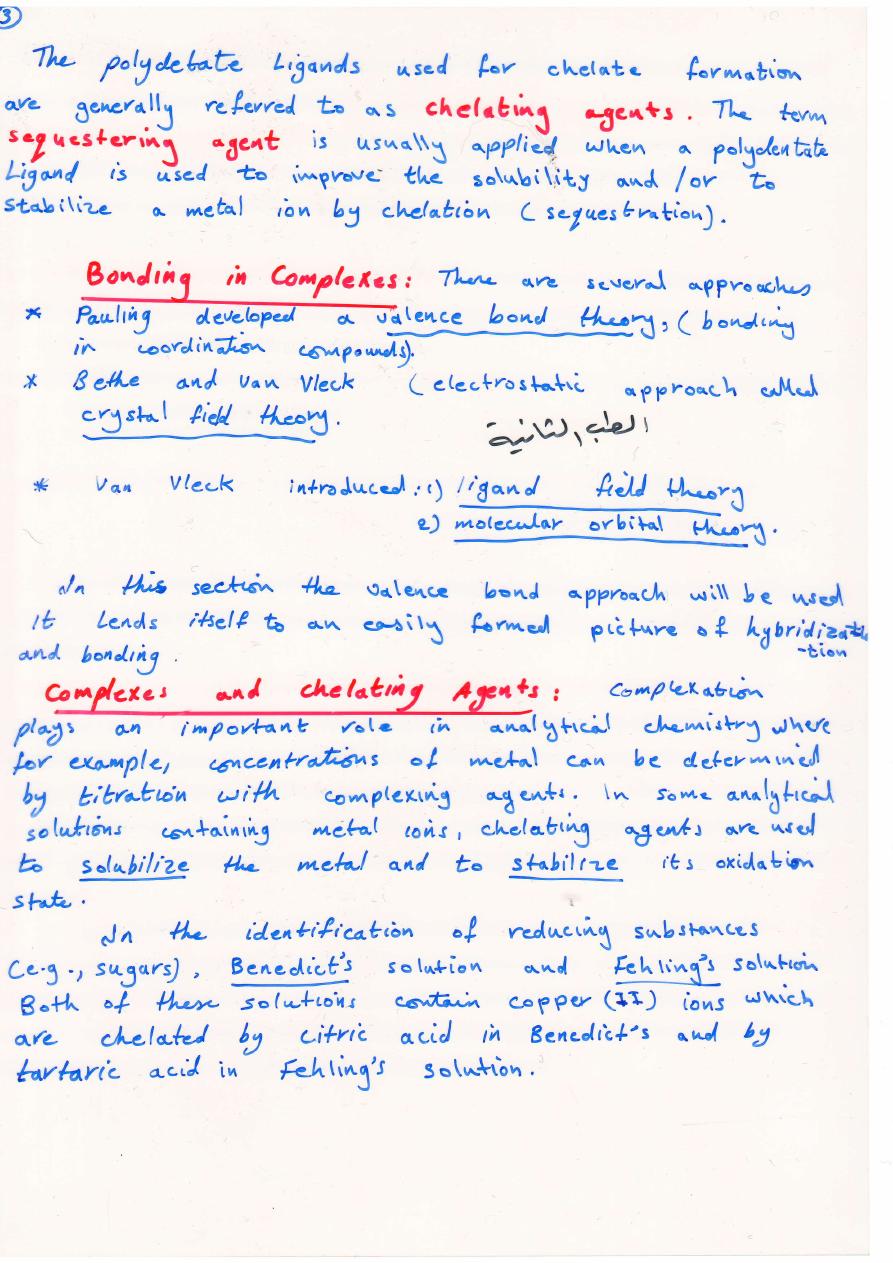 3
The polydetate Ligands used for chelate formation
are generally referred to as chelating agents. The term
sequestering agent is usually applied when a polydentate
Ligand is used to improve the solubility and /or to
stabilize a metal ion by chelation (sequestration).
Bonding in Complexes: There are several approaches
* Pauling developed a valence bond theory, (bonding
in coordination compounds).
* Bethe and Van Vleck (electrostatic approach called
crystal field theory.
الطب الثانية
* Van Vleck introduced: 1) ligand field theory
2) molecular orbital theory.
In this section the valence bond approach will be used
it Lends itself to an easily formed picture of hybridizati
-tion
and bonding.
Complexes and chelating Agents: Complexation
plays an important role in analytical chemistry where
for example, concentrations of metal can be determined
by titration with complexing agents. In some analytical
solutions containing metal ions, chelating agents are used
to solubilize the metal and to stabilize its oxidation
state.
In the identification of reducing substances
(e.g., sugars), Benedict's solution and Fehling's solution
Both of these solutions contain copper (II) ions which
are chelated by citric acid in Benedict's and by
tartaric acid in Fehling's solution.